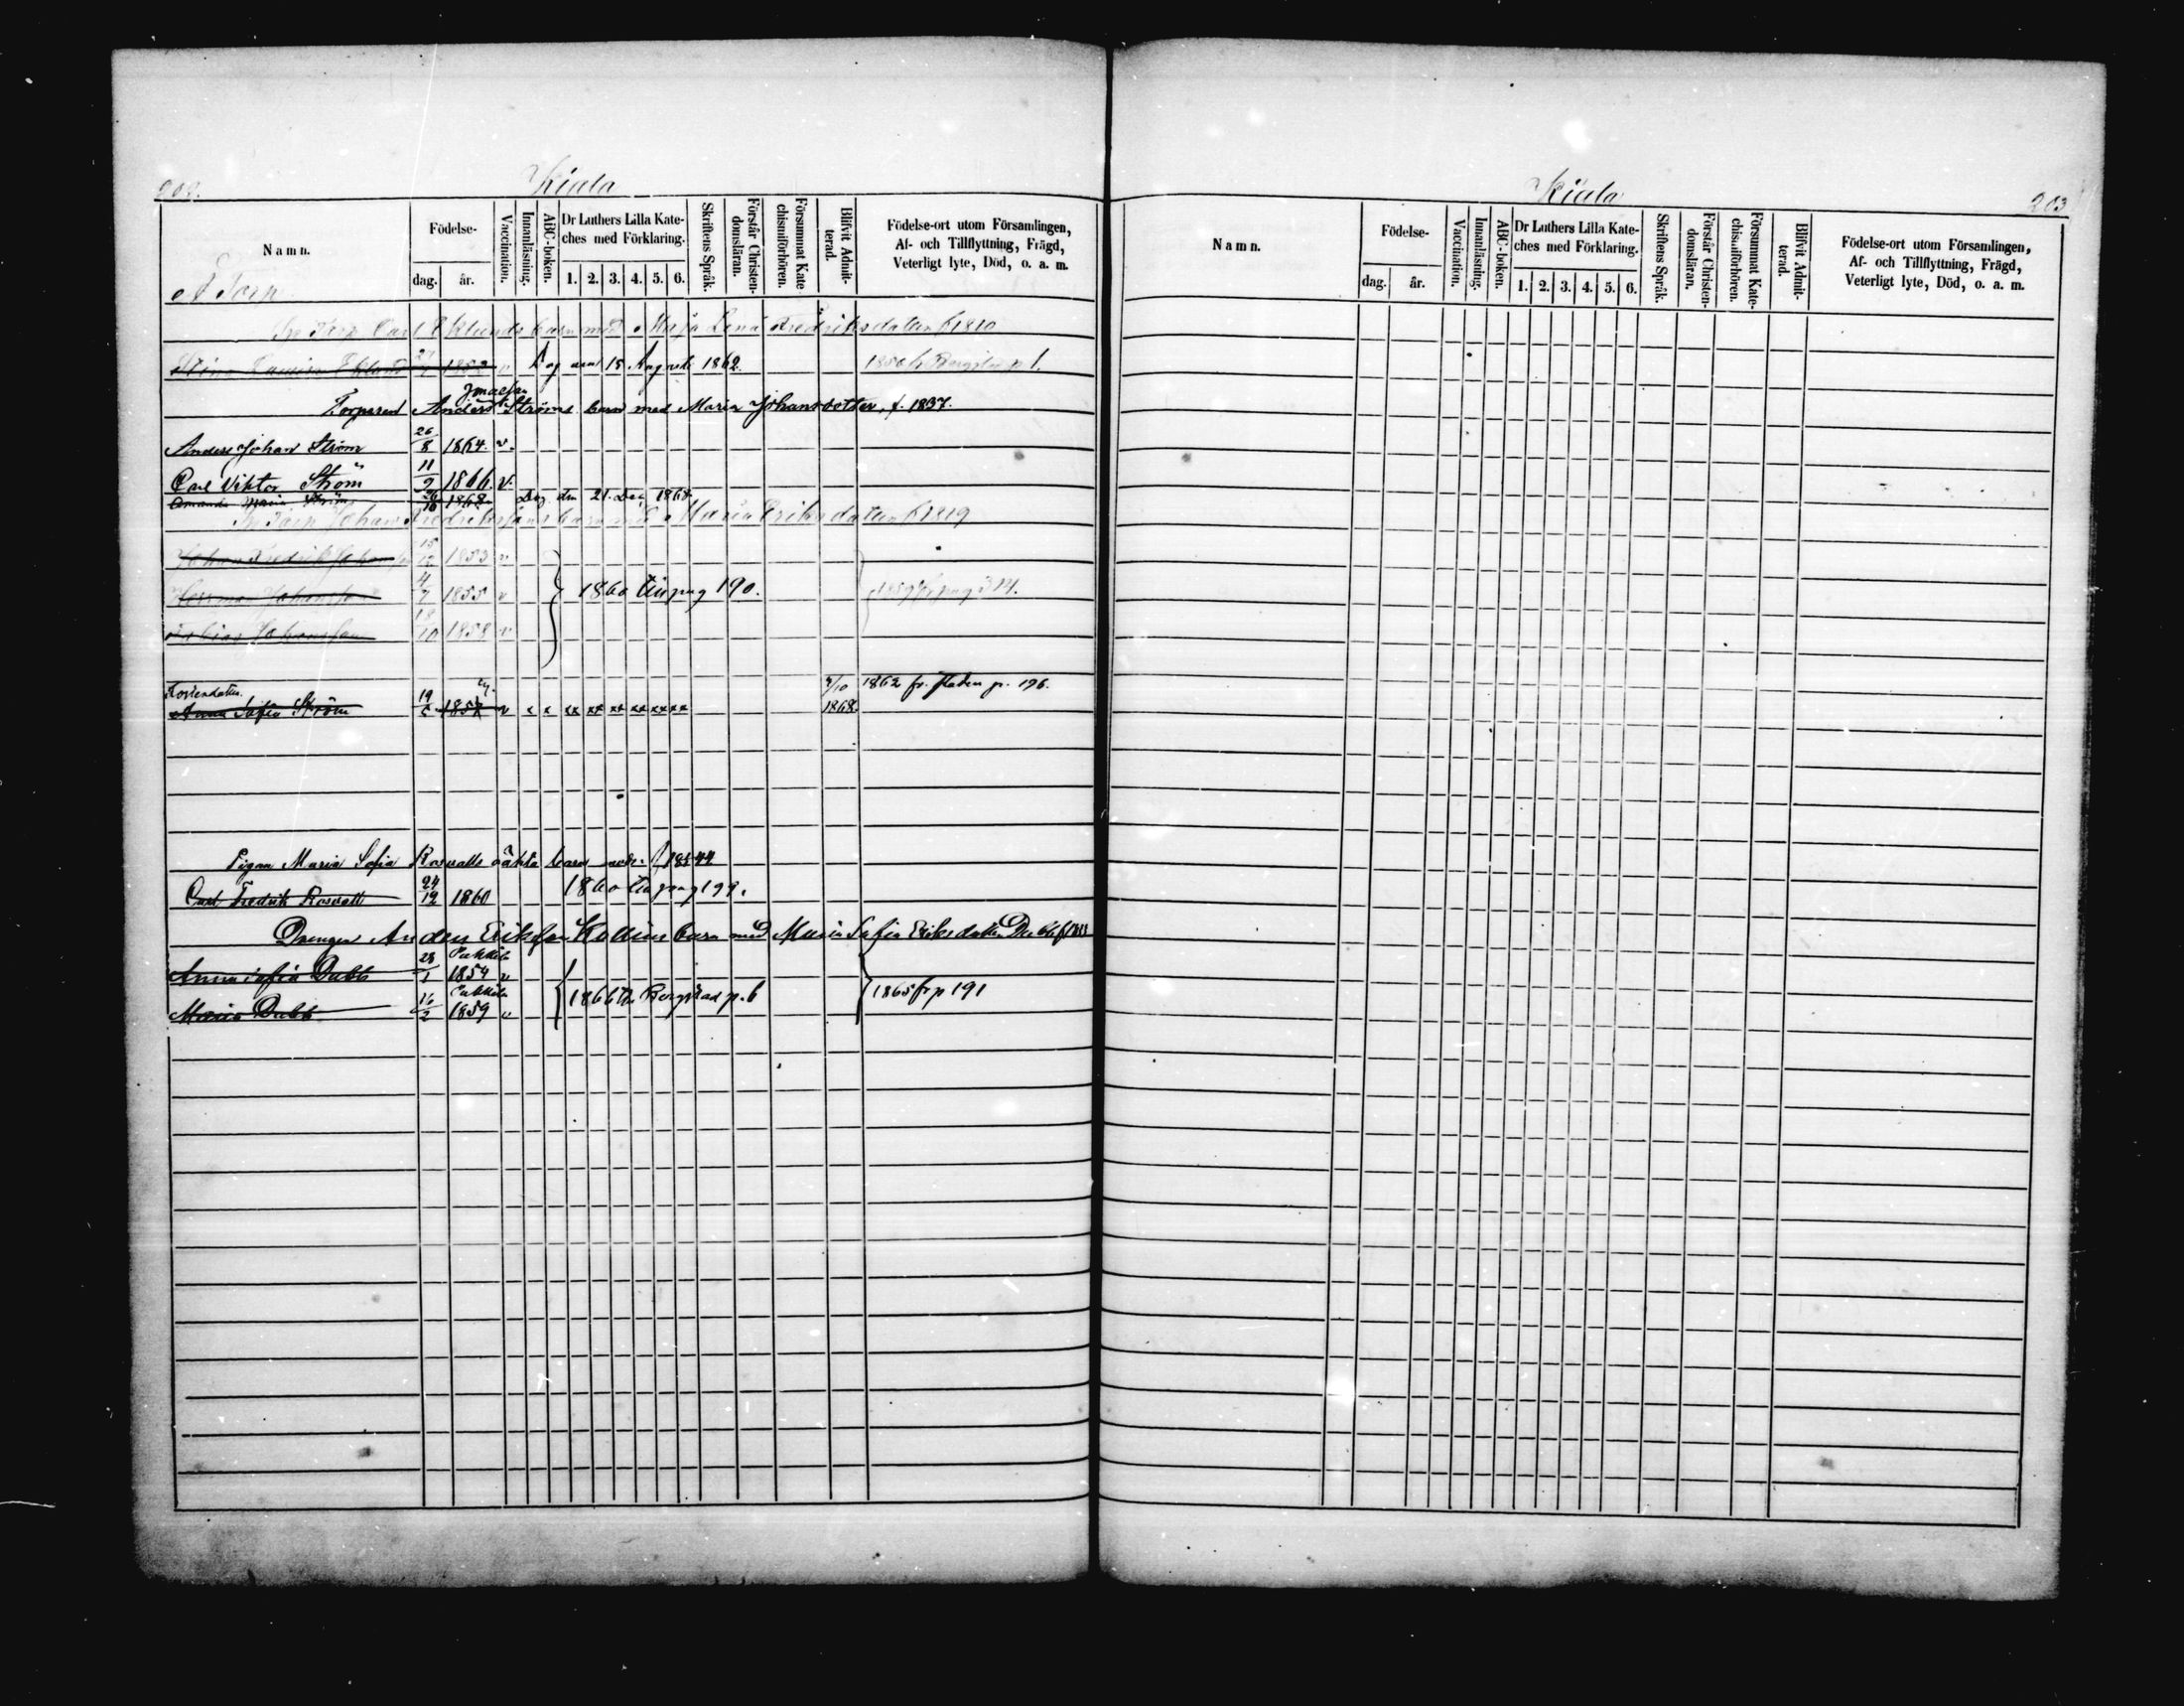 202.
Kiala
Namn.
Födelse-
dag.
år.
Vaccination.
Innanläsning.
ABC-boken.
Dr Luthers Lilla Kate-
ches med Förklaring.
1. 2. 3. 4. 5. 6.
Skriftens Språk.
Förstår Christen-
domsläran.
Försummat Kate
chismiförhören.
Blifvit Admit-
terad.
Födelse-ort utom Församlingen,
Af- och Tillflyttning, Frägd,
Veterligt lyte, Död, o. a. m.
Torp
Torp Carl Eklunds barn med Maja Lena Fredriksdatter f 1810
Stina Lovisa Eklund 1852 v Dog 15 Augusti 1862.
Torparen Anders Ströms barn med Maria Johansdotter, f. 1837.
Anders Johan Ström 26/8 1864. v.
Carl Viktor Ström 11/9 1866. v.
Amanda Maria Ström 1868 Dog den 21. Dec 1868.
Torp Johan Fredrikssons barn med Maria Eriksdatter f 1819
Johan Fredrik Johansson 15/12 1853 v
Herrman Johansson 4/7 1855 v 1860 till pag 190.
Tobias Johansson 18/10 1858 v
Fosterdatter.
Anna Sofia Ström 19 v x x xx xx xx xx xx xx 1868. 1862 fr. staden p. 196.
Pigan Maria Sofia Rosvalls oäkta barn
Carl Fredrik Rosvall 24/12 1860 1860 till pag 199.
Drengen Anders Eriksson Kollins barn med Maria Sofia Eriksdotter Dubb
Anna Sofia Dubb 28/1 Pukkila 1854 v
Maria Dubb 16/2 Pukkila 1859 v 1866 till Borgstad p. 6 1865 fr p 191
Kiala
203
Namn.
Födelse-
dag.
år.
Vaccination.
Innanläsning.
ABC-boken.
Dr Luthers Lilla Kate-
ches med Förklaring.
1. 2. 3. 4. 5. 6.
Skriftens Språk.
Förstår Christen-
domsläran.
Försummat Kate-
chismiförhören.
Blifvit Admit-
terad.
Födelse-ort utom Församlingen,
Af- och Tillflyttning, Frägd,
Veterligt lyte, Död, o. a. m.